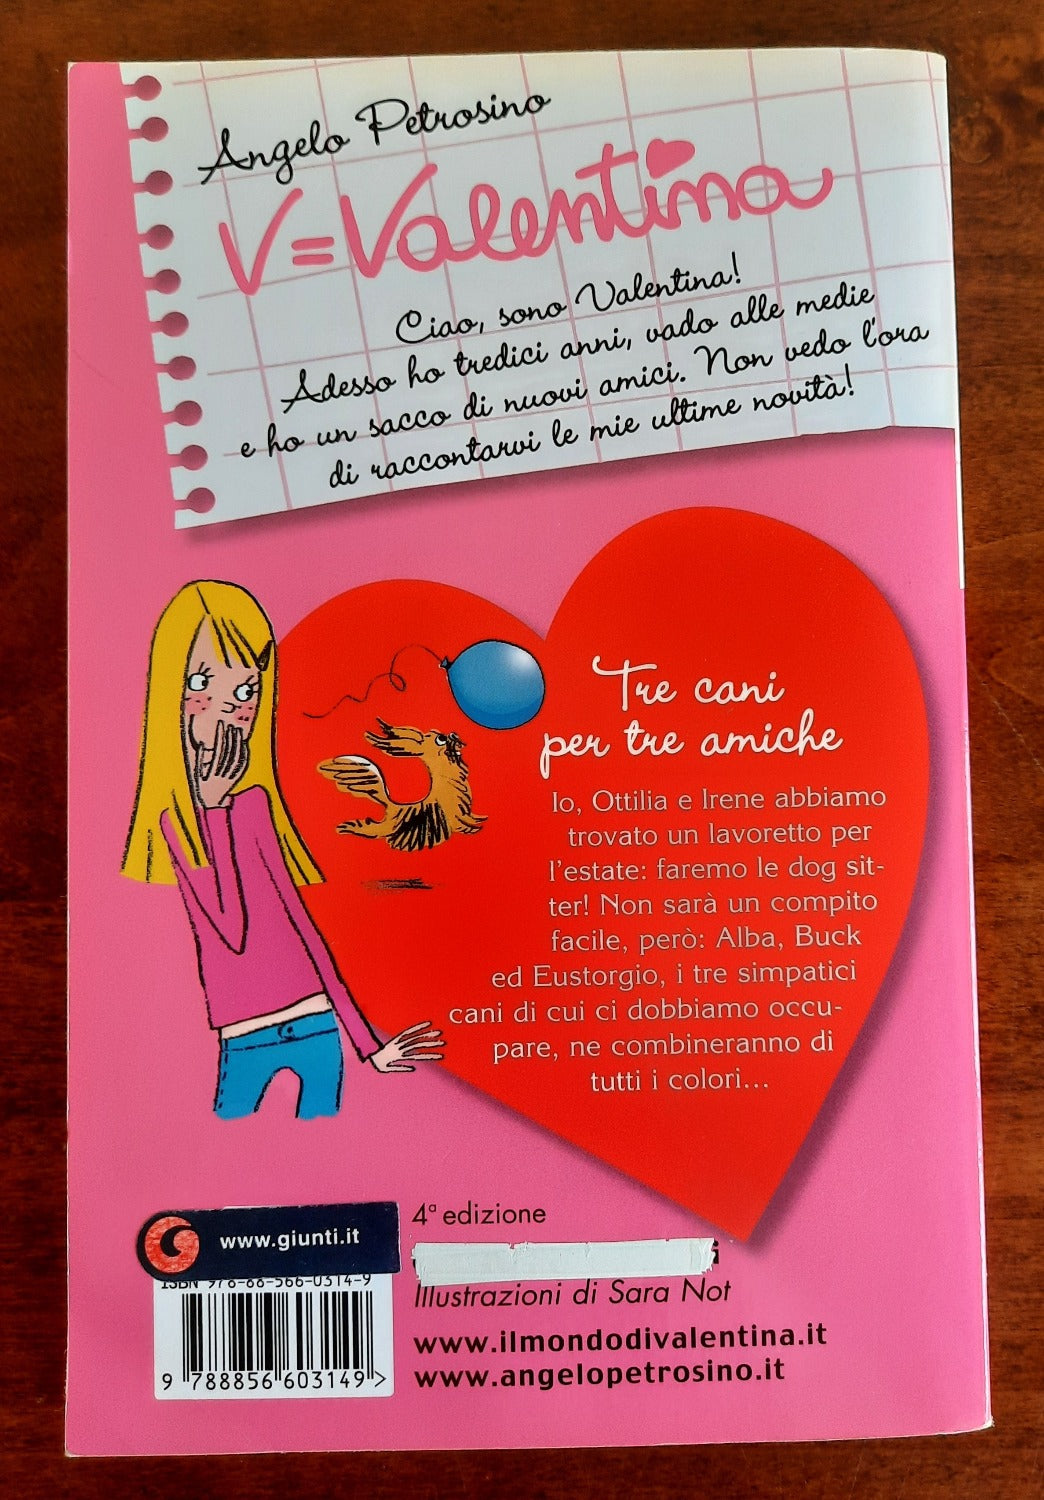 Angelo Petrosino
V=Valentina
Ciao, sono Valentina!
Adesso ho tredici anni, vado alle medie
e ho un sacco di nuovi amici. Non vedo l'ora
di raccontarvi le mie ultime novità!
Tre cani
per tre amiche
Io, Ottilia e Irene abbiamo
trovato un lavoretto per
l'estate: faremo le dog sit-
ter! Non sarà un compito
facile, però: Alba, Buck
ed Eustorgio, i tre simpatici
cani di cui ci dobbiamo occu-
pare, ne combineranno di
tutti i colori...
4ª edizione
www.giunti.it
ISBN 978-88-566-0314-9
Illustrazioni di Sara Not
www.ilmondodivalentina.it
www.angelopetrosino.it
9 788856 603149 >